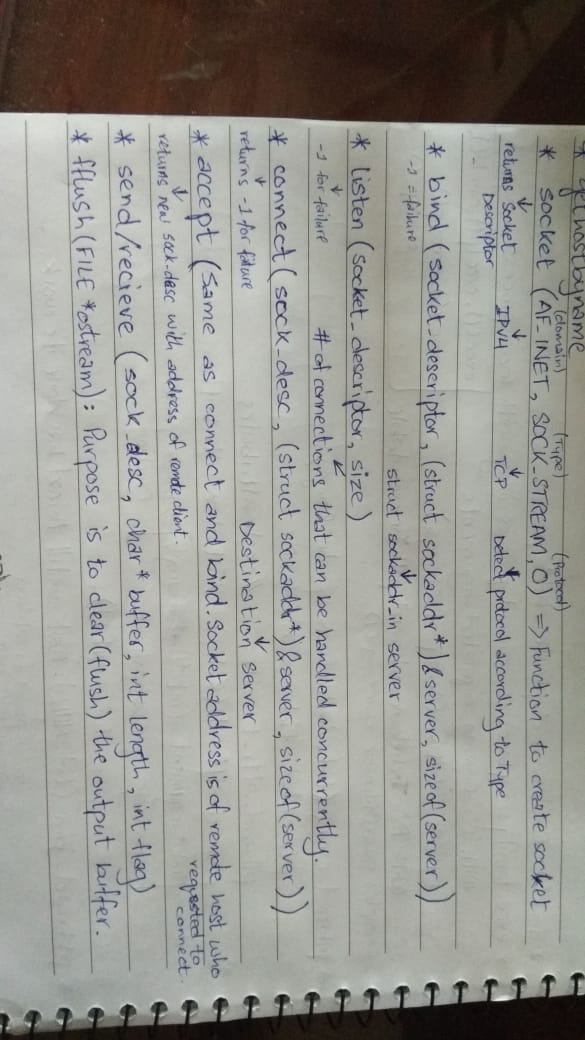 * gethostbyname
(domain) (Type) (Protocol)
* socket (AF_INET, SOCK_STREAM, 0) => Function to create socket
returns Socket IPV4 TCP Detect protocol according to Type
Descriptor
* bind (socket-descriptor, (struct sockaddr*)&server, sizeof(server))
-1 = failure
struct sockaddr_in server
* listen (socket_descriptor, size)
-1 for failure # of connections that can be handled concurrently.
* connect (sock_desc, (struct sockaddr*)&server, sizeof(server))
returns -1 for failure Destination server
* accept (Same as connect and bind. Socket address is of remote host who
requested to
connect.
returns new sock-desc with address of remote client.
* send/recieve (sock_desc, char* buffer, int length, int flag)
* fflush(FILE *ostream): Purpose is to clear(flush) the output buffer.